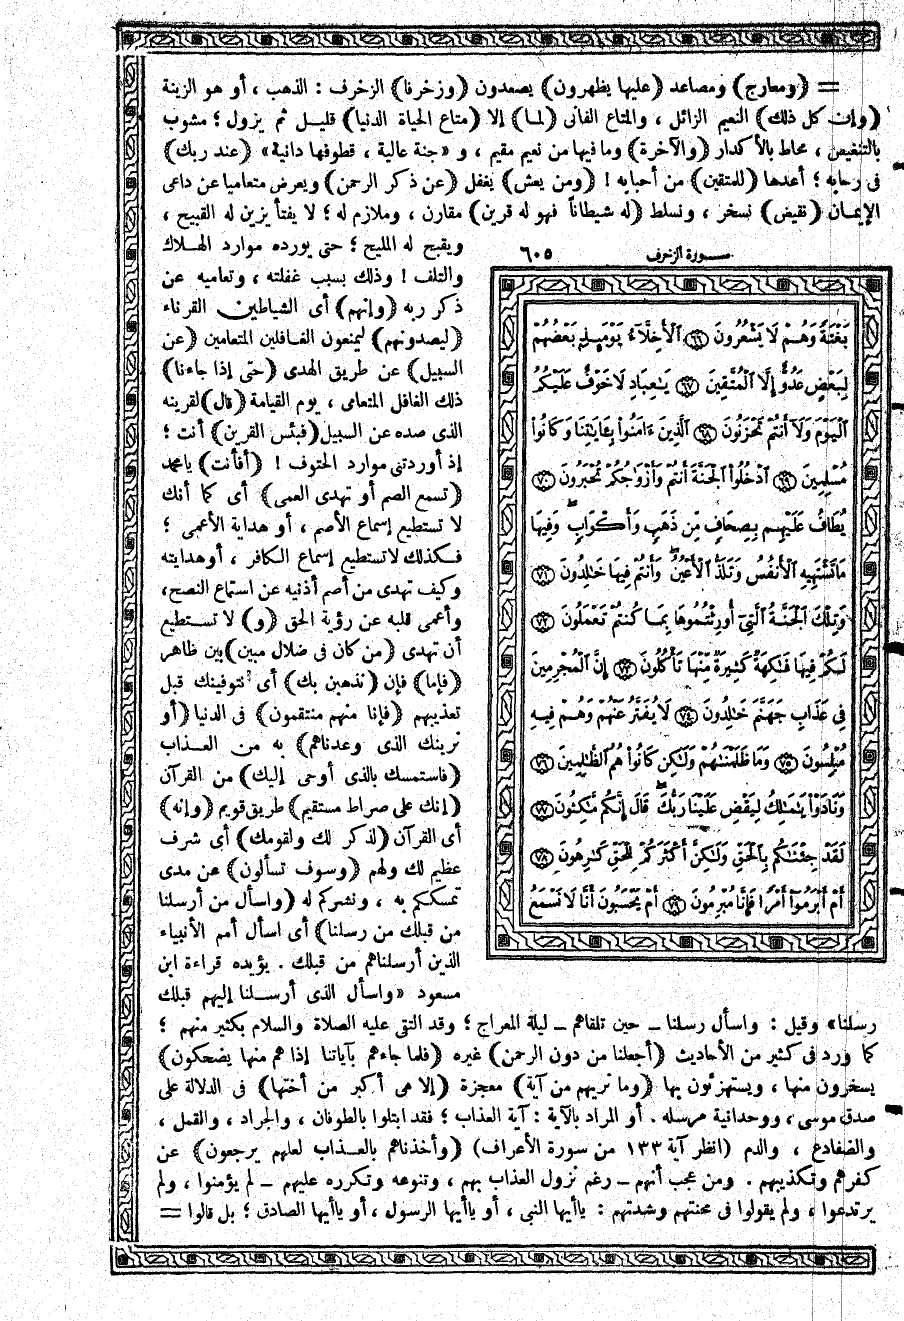 = (ومعارج) ومصاعد (عليها يظهرون) يصعدون (وزخرفا) الزخرف : الذهب ، أو هو الزينة
(وإن كل ذلك) النعيم الزائل ، والمتاع الفانى (لما) إلا (متاع الحياة الدنيا) قليل ثم يزول ؛ مشوب
بالتنغيص ، محاط بالأكدار (والآخرة) وما فيها من نعيم مقيم ، و «جنة عالية ، قطوفها دانية» (عند ربك)
فى رحابه ؛ أعدها (للمتقين) من أحبابه ! (ومن يعش) يغفل (عن ذكر الرحمن) ويعرض متعاميا عن داعى
الإيمان (نقيض) نسخر ، ونسلط (له شيطاناً فهو له قرين) مقارن ، وملازم له ؛ لا يفتأ يزين له القبيح ،
ويقبح له المليح ؛ حتى يورده موارد الهلاك
والتلف ! وذلك بسبب غفلته ، وتعاميه عن
ذكر ربه (وإنهم) أى الشياطين القرناء
(ليصدونهم) ليمنعون الغافلين المتعامين (عن
السبيل) عن طريق الهدى (حتى إذا جاءنا)
ذلك الغافل المتعامى ، يوم القيامة (قال) لقرينه
الذى صده عن السبيل (فبئس القرين) أنت ؛
إذ أوردتنى موارد الحتوف ! (أفأنت) يا محمد
(تسمع الصم أو تهدى العمى) أى كما أنك
لا تستطيع إسماع الأصم ، أو هداية الأعمى ؛
فكذلك لا تستطيع إسماع الكافر ، أو هدايته
وكيف تهدى من أصم أذنيه عن استماع النصح،
وأعمى قلبه عن رؤية الحق (و) لا تستطيع
أن تهدى (من كان فى ضلال مبين) بين ظاهر
(فإما) فإن (نذهبن بك) أى نتوفينك قبل
تعذيبهم (فإنا منهم منتقمون) فى الدنيا (أو
نرينك الذى وعدناهم) به من العذاب
(فاستمسك بالذى أوحى إليك) من القرآن
(إنك على صراط مستقيم) طريق قويم (وإنه)
أى القرآن (لذكر لك ولقومك) أى شرف
عظيم لك ولهم (وسوف تسألون) عن مدى
تمسككم به ، ونشركم له (واسأل من أرسلنا
من قبلك من رسلنا) أى اسأل أمم الأنبياء
الذين أرسلناهم من قبلك . يؤيده قراءة ابن
مسعود «واسأل الذى أرسلنا إليهم قبلك
سورة الزخرف ٦٠٥
بَغْتَةً وَهُمْ لَا يَشْعُرُونَ ٦٦ ٱلْأَخِلَّآءُ يَوْمَئِذٍۭ بَعْضُهُمْ
لِبَعْضٍ عَدُوٌّ إِلَّا ٱلْمُتَّقِينَ ٦٧ يَٰعِبَادِ لَا خَوْفٌ عَلَيْكُمُ
ٱلْيَوْمَ وَلَآ أَنتُمْ تَحْزَنُونَ ٦٨ ٱلَّذِينَ ءَامَنُوا۟ بِـَٔايَٰتِنَا وَكَانُوا۟
مُسْلِمِينَ ٦٩ ٱدْخُلُوا۟ ٱلْجَنَّةَ أَنتُمْ وَأَزْوَٰجُكُمْ تُحْبَرُونَ ٧٠
يُطَافُ عَلَيْهِم بِصِحَافٍ مِّن ذَهَبٍ وَأَكْوَابٍ وَفِيهَا
مَا تَشْتَهِيهِ ٱلْأَنفُسُ وَتَلَذُّ ٱلْأَعْيُنُ وَأَنتُمْ فِيهَا خَٰلِدُونَ ٧١
وَتِلْكَ ٱلْجَنَّةُ ٱلَّتِىٓ أُورِثْتُمُوهَا بِمَا كُنتُمْ تَعْمَلُونَ ٧٢
لَكُمْ فِيهَا فَٰكِهَةٌ كَثِيرَةٌ مِّنْهَا تَأْكُلُونَ ٧٣ إِنَّ ٱلْمُجْرِمِينَ
فِى عَذَابِ جَهَنَّمَ خَٰلِدُونَ ٧٤ لَا يُفَتَّرُ عَنْهُمْ وَهُمْ فِيهِ
مُبْلِسُونَ ٧٥ وَمَا ظَلَمْنَٰهُمْ وَلَٰكِن كَانُوا۟ هُمُ ٱلظَّٰلِمِينَ ٧٦
وَنَادَوْا۟ يَٰمَٰلِكُ لِيَقْضِ عَلَيْنَا رَبُّكَ قَالَ إِنَّكُم مَّٰكِثُونَ ٧٧
لَقَدْ جِئْنَٰكُم بِٱلْحَقِّ وَلَٰكِنَّ أَكْثَرَكُمْ لِلْحَقِّ كَٰرِهُونَ ٧٨
أَمْ أَبْرَمُوٓا۟ أَمْرًا فَإِنَّا مُبْرِمُونَ ٧٩ أَمْ يَحْسَبُونَ أَنَّا لَا نَسْمَعُ
رسلنا» وقيل : واسأل رسلنا – حين تلقاهم – ليلة المعراج ؛ وقد التقى عليه الصلاة والسلام بكثير منهم ؛
كما ورد فى كثير من الأحاديث (أجعلنا من دون الرحمن) غيره (فلما جاءهم بآياتنا إذا هم منها يضحكون)
يسخرون منها ، ويستهزئون بها (وما نريهم من آية) معجزة (إلا هى أكبر من أختها) فى الدلالة على
صدق موسى ، ووحدانية مرسله . أو المراد بالآية : آية العذاب ؛ فقد ابتلوا بالطوفان ، والجراد ، والقمل ،
والضفادع ، والدم (انظر آية ١٣٣ من سورة الأعراف) (وأخذناهم بالعذاب لعلهم يرجعون) عن
كفرهم وتكذيبهم . ومن عجب أنهم – رغم نزول العذاب بهم ، وتنوعه وتكرره عليهم – لم يؤمنوا ، ولم
يرتدعوا ، ولم يقولوا فى محنتهم وشدتهم : يا أيها النبى ، أو يا أيها الرسول ، أو يا أيها الصادق ؛ بل قالوا =